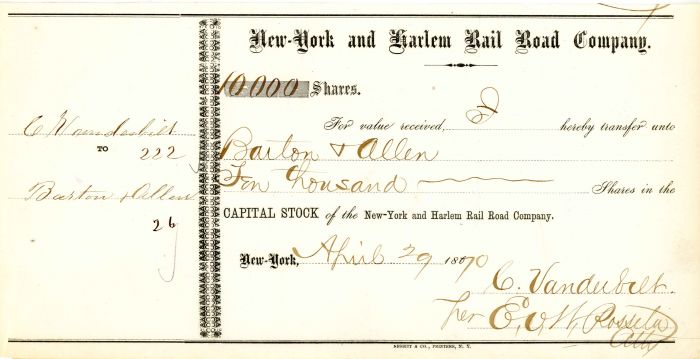 New-York and Harlem Rail Road Company.
10,000 Shares.
For value received, I hereby transfer unto
Barton & Allen
Ten Thousand Shares in the
CAPITAL STOCK of the New-York and Harlem Rail Road Company.
New-York, April 29 1870
C. Vanderbilt.
Per E. V. W. Rossiter
Atty
C Vanderbilt
TO 222
Barton & Allen
26
NESBITT & CO., PRINTERS, N. Y.